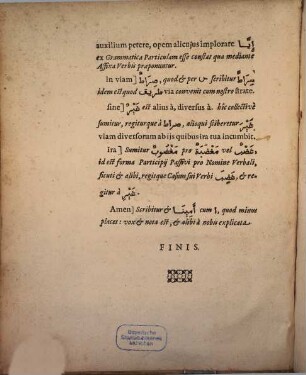 auxilium petere, opem alicujus implorare إِيَّا
ex Grammatica Particulam esse constat qua mediante
Affixa Verbis præponuntur.
In viam] صِرَاطُ, quod & per س scribitur سِرَاطُ
idem est quod طَرِيقُ via convenit cum nostro strate.
sine] غَيْرُ est alius à, diversus à. hic collectivè
sumitur, regiturque à صراط, alioqui scriberetur غَيْرَ
viam diversorum ab ijs quibus ira tua incumbit.
ira] Sumitur مَغْضُوبُ pro مَغْضَبَةُ vel غَضَبُ
id est forma Participij Passivi pro Nomine Verbali,
sicuti & alibi, regitque Casum sui Verbi غَضِبَ, & re-
gitur à غَيْرِ
Amen] Scribitur & أمينا cum ا, quod minus
placet: vox & nota est, & alibi à nobis explicata
FINIS.
Bayerische
Staatsbibliothek
München